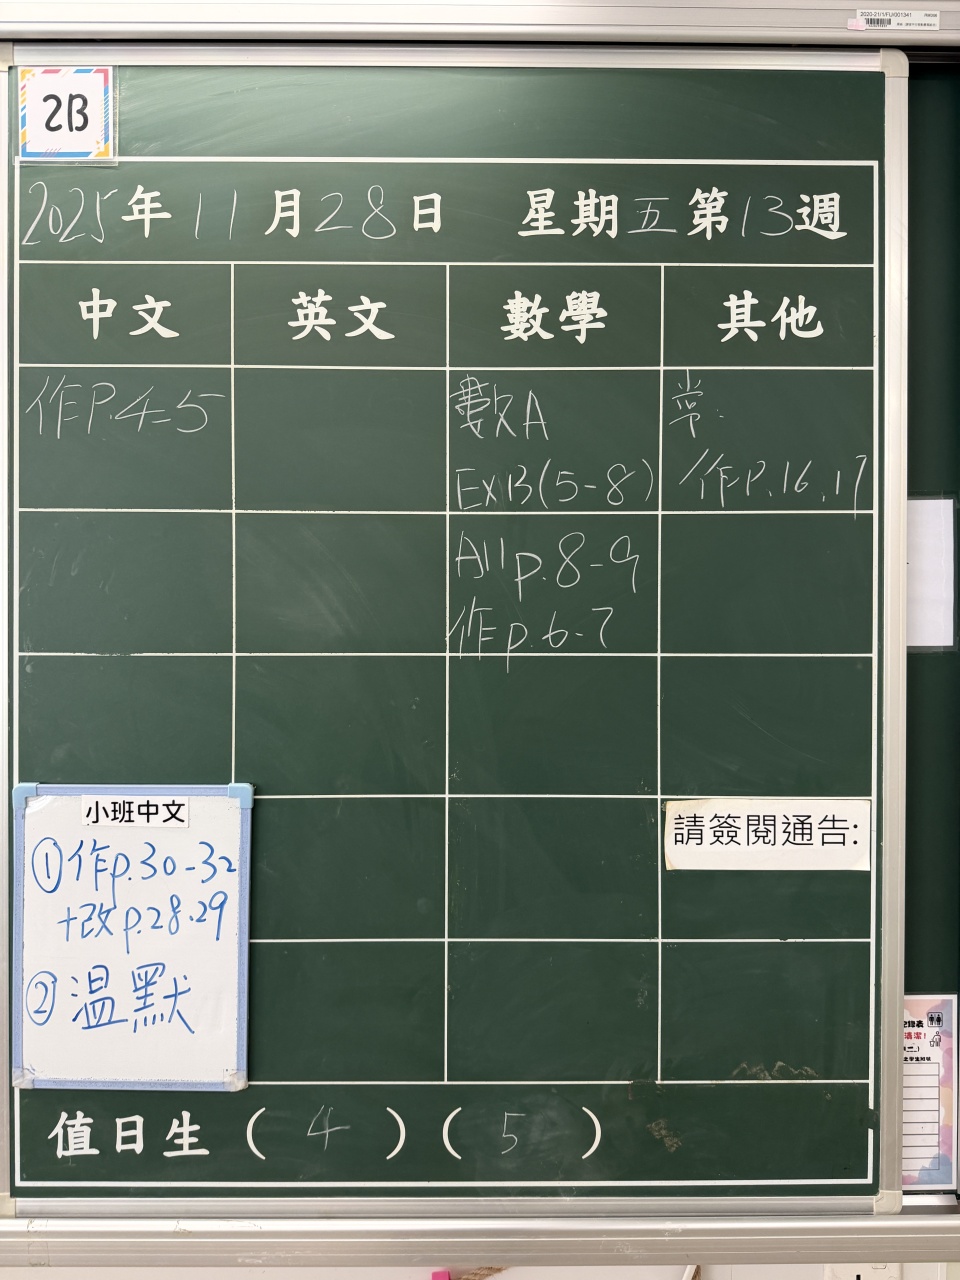 2020-21/1/FU/001341
2B
2025年11月28日 星期五第13週
中文 英文 數學 其他
作P.4-5
數A
Ex13(5-8)
All p.8-9
作p.6-7
常:
作P.16,17
小班中文
①作p.30-32
+改p.28.29
②溫默
請簽閱通告:
值日生(4)(5)